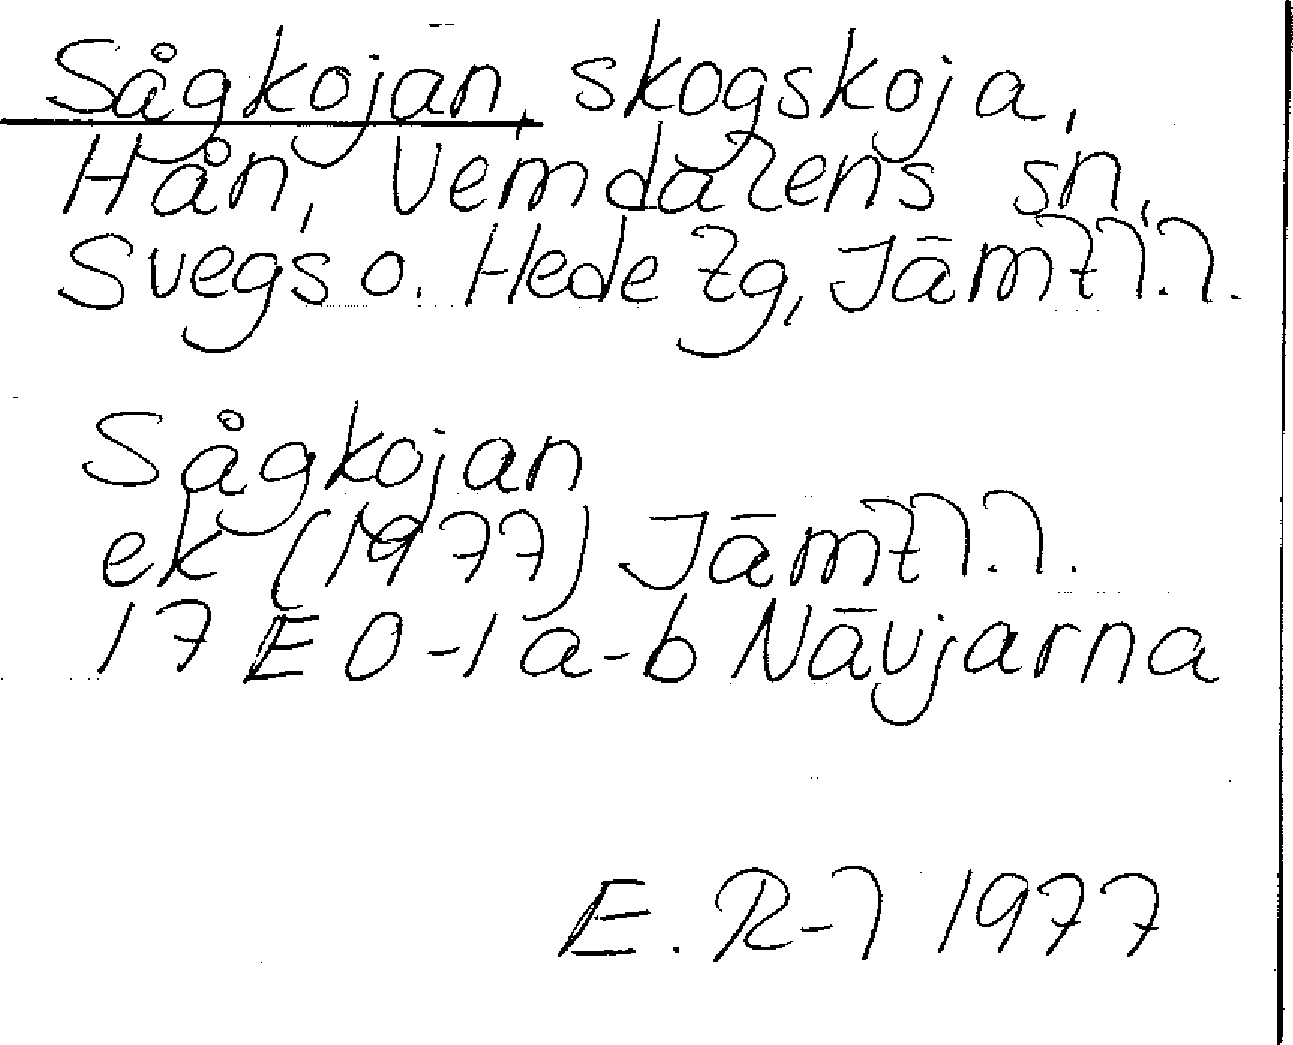 Sågkojan, skogskoja,
Hån, Vemdalens sn,
Svegs o. Hede tg, Jämtl. l.
Sågkojan
ek (1977) Jämtl. l.
17 E 0-1 a-b Nävjarna
E. R-l 1977